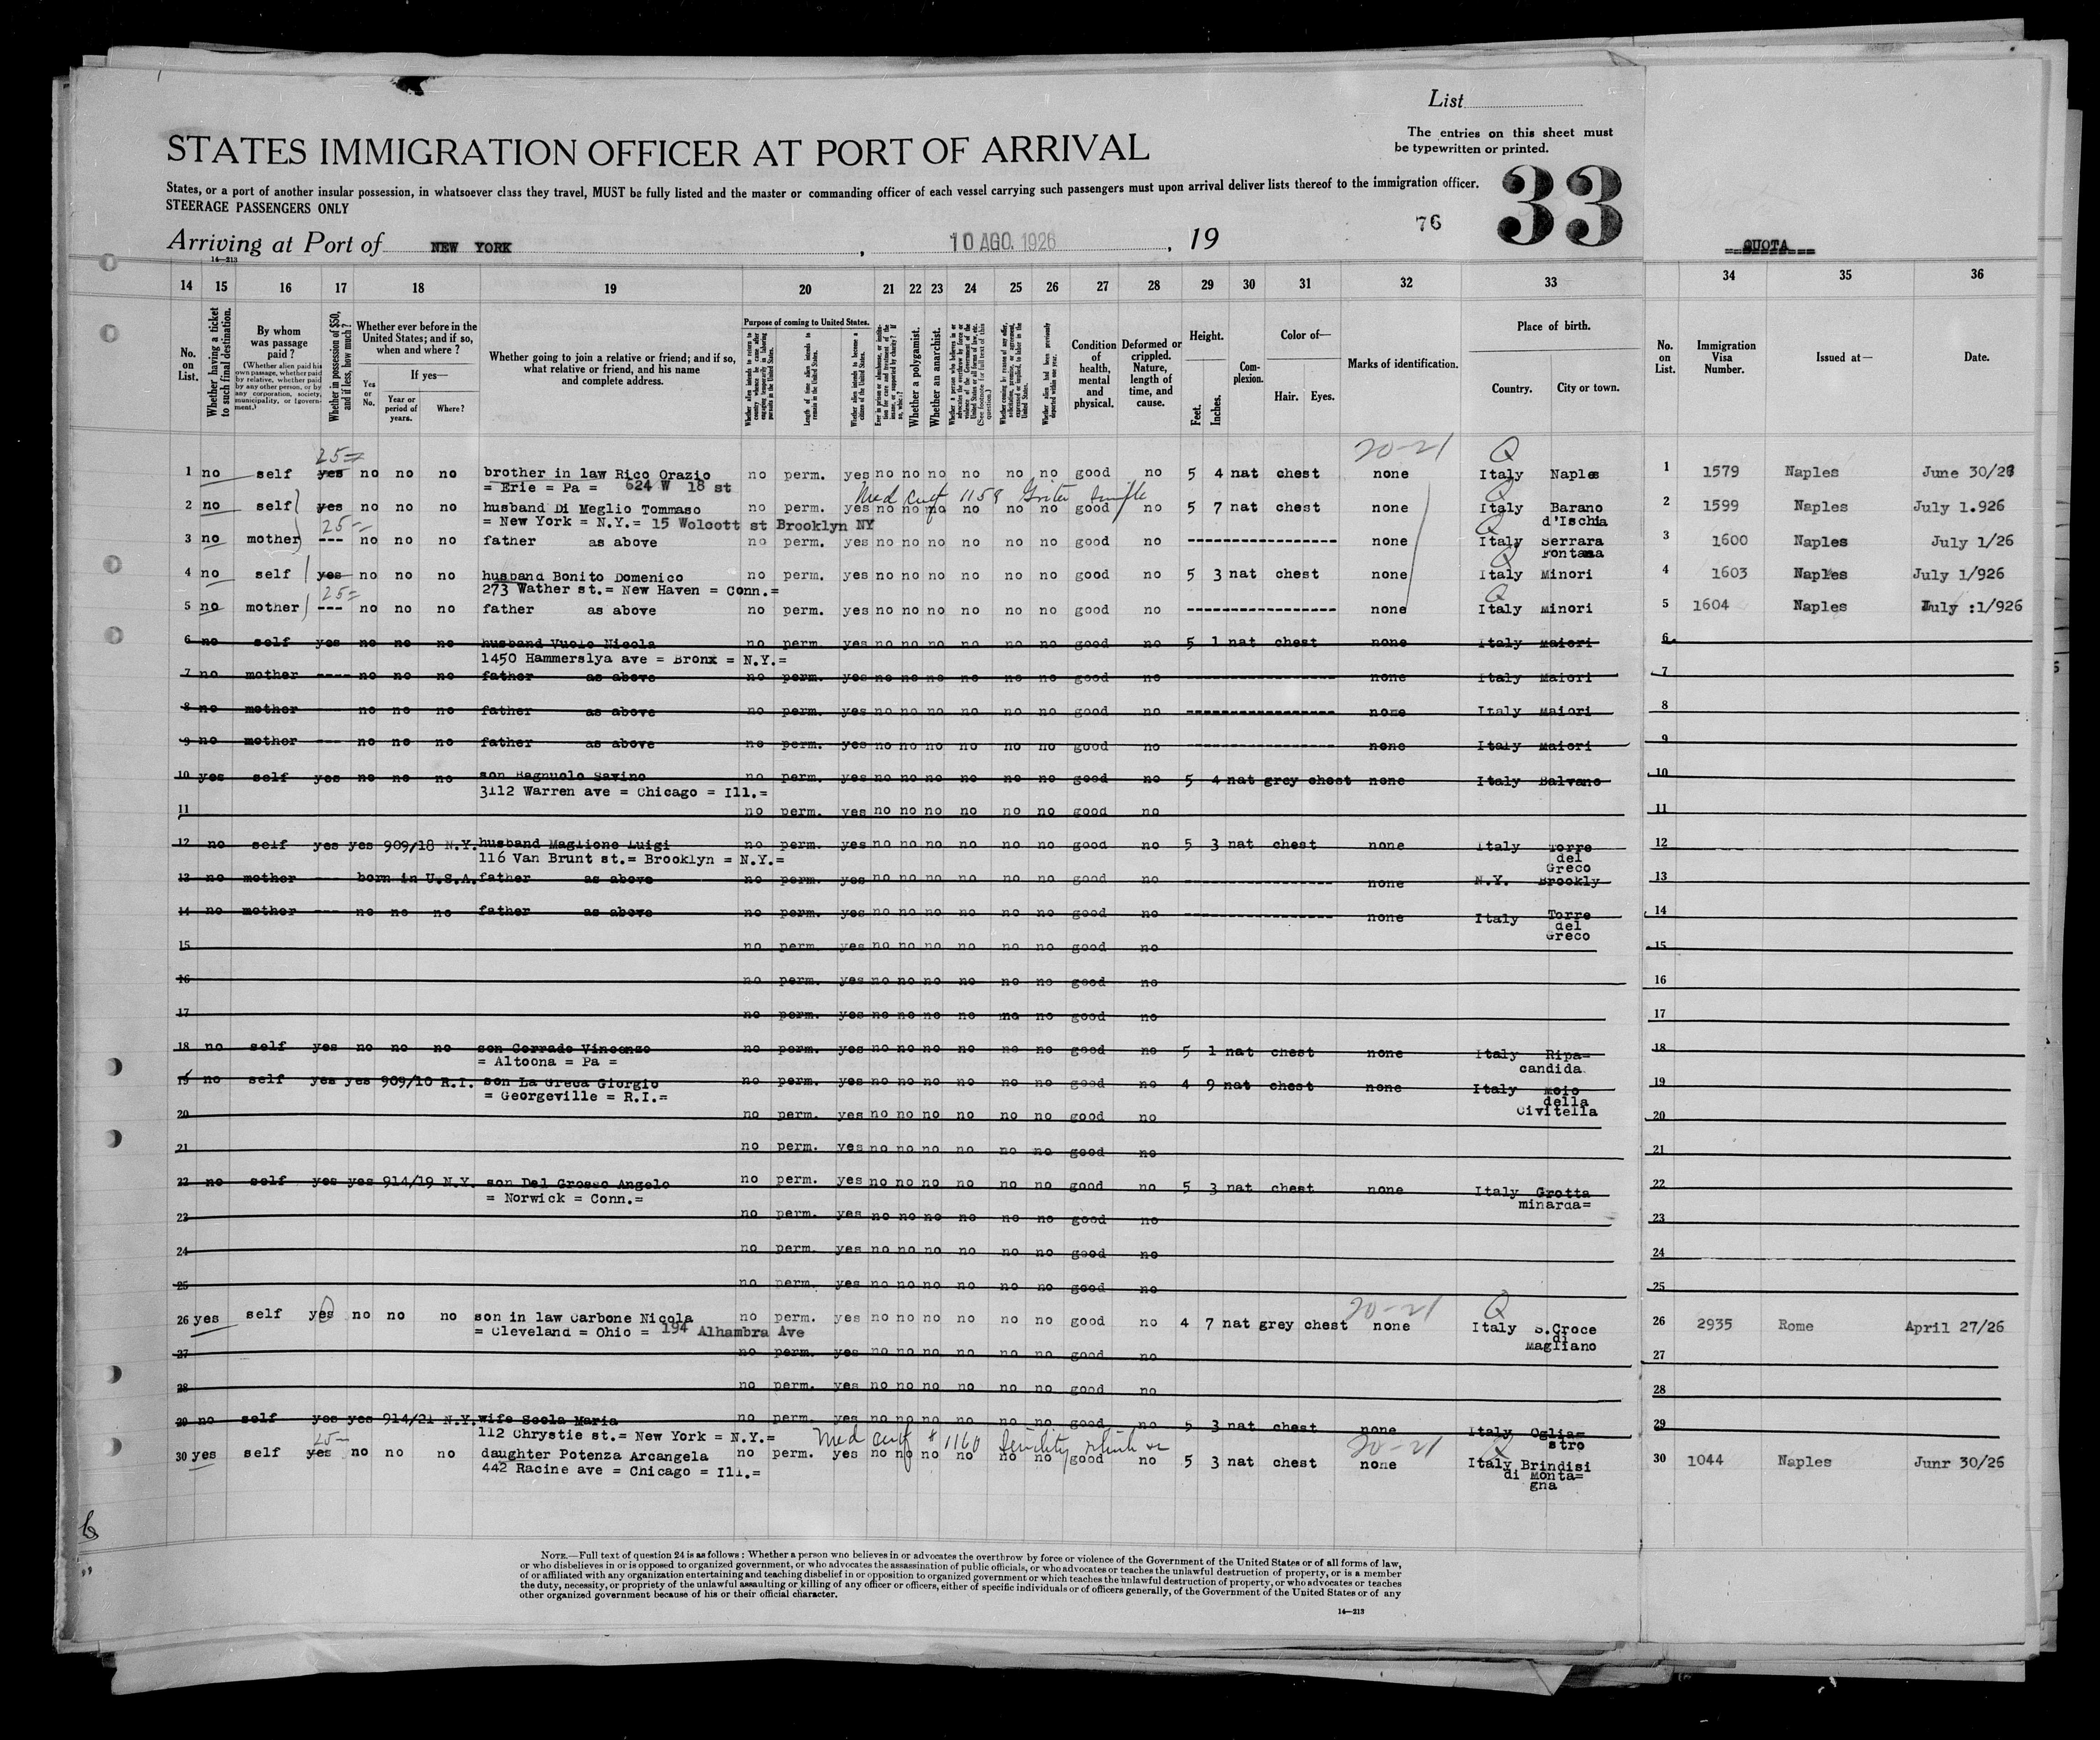 List
The entries on this sheet must
be typewritten or printed.
STATES IMMIGRATION OFFICER AT PORT OF ARRIVAL
33
States, or a port of another insular possession, in whatsoever class they travel, MUST be fully listed and the master or commanding officer of each vessel carrying such passengers must upon arrival deliver lists thereof to the immigration officer.
STEERAGE PASSENGERS ONLY
76
Arriving at Port of NEW YORK, 10 AGO. 1926, 19
QUOTA
14—213
14 15 16 17 18 19 20 21 22 23 24 25 26 27 28 29 30 31 32 33 34 35 36
No. on List.
Whether having a ticket to such final destination.
By whom was passage paid?
(Whether alien paid his own passage, whether paid by relative, whether paid by any other person, or by any corporation, society, municipality, or government.)
Whether in possession of $50, and if less, how much?
Whether ever before in the United States; and if so, when and where?
Yes or No.
If yes—
Year or period of years.
Where?
Whether going to join a relative or friend; and if so, what relative or friend, and his name and complete address.
Purpose of coming to United States.
Length of time alien intends to remain in the United States.
Whether alien intends to become a citizen of the United States.
Whether a polygamist.
Whether an anarchist.
Condition of health, mental and physical.
Deformed or crippled. Nature, length of time, and cause.
Height.
Feet.
Inches.
Complexion.
Color of—
Hair. Eyes.
Marks of identification.
Place of birth.
Country. City or town.
No. on List.
Immigration Visa Number.
Issued at—
Date.
25= 20-21 Q
1 no self yes no no no brother in law Rico Orazio no perm. yes no no no no no no good no 5 4 nat chest none Italy Naples 1 1579 Naples June 30/26
= Erie = Pa = 624 W 18 st
Med Cert 1158
2 no self yes no no no husband Di Meglio Tommaso no perm. yes no no no no no no good no 5 7 nat chest none Italy Barano 2 1599 Naples July 1.926
25= = New York = N.Y.= 15 Wolcott st Brooklyn NY d'Ischia
3 no mother --- no no no father as above no perm. yes no no no no no no good no ---------------- none Italy Serrara 3 1600 Naples July 1/26
Fontana
4 no self yes no no no husband Bonito Domenico no perm. yes no no no no no no good no 5 3 nat chest none Italy Minori 4 1603 Naples July 1/926
25= 273 Wather st.= New Haven = Conn.=
5 no mother --- no no no father as above no perm. yes no no no no no no good no ---------------- none Italy Minori 5 1604 Naples July :1/926
6 no self yes no no no husband Vuolo Nicola no perm. yes no no no no no no good no 5 1 nat chest none Italy Maiori 6
1450 Hammerslya ave = Bronx = N.Y.=
7 no mother ---- no no no father as above no perm. yes no no no no no no good no ---------------- none Italy Maiori 7
8 no mother --- no no no father as above no perm. yes no no no no no no good no ---------------- none Italy Maiori 8
9 no mother --- no no no father as above no perm. yes no no no no no no good no ---------------- none Italy Maiori 9
10 yes self yes no no no son Bagnuolo Savino no perm. yes no no no no no no good no 5 4 nat grey chest none Italy Balvano 10
3112 Warren ave = Chicago = Ill.=
11 no perm. yes no no no no no no good no 11
12 no self yes yes 909/18 N.Y. husband Maglione Luigi no perm. yes no no no no no no good no 5 3 nat chest none Italy Torre 12
116 Van Brunt st.= Brooklyn = N.Y.= del
Greco
13 no mother --- born in U.S.A. father as above no perm. yes no no no no no no good no ---------------- none N.Y. Brookly 13
14 no mother --- no no no father as above no perm. yes no no no no no no good no ---------------- none Italy Torre 14
del
Greco
15 no perm. yes no no no no no no good no 15
16 no perm. yes no no no no no no good no 16
17 no perm. yes no no no no no no good no 17
18 no self yes no no no son Corrado Vincenzo no perm. yes no no no no no no good no 5 1 nat chest none Italy Ripa= 18
= Altoona = Pa = candida
19 no self yes yes 909/10 R.I. son La Greca Giorgio no perm. yes no no no no no no good no 4 9 nat chest none Italy Moio 19
= Georgeville = R.I.= della
Civitella
20 no perm. yes no no no no no no good no 20
21 no perm. yes no no no no no no good no 21
22 no self yes yes 914/19 N.Y. son Del Grosso Angelo no perm. yes no no no no no no good no 5 3 nat chest none Italy Grotta 22
= Norwick = Conn.= minarda=
23 no perm. yes no no no no no no good no 23
24 no perm. yes no no no no no no good no 24
25 no perm. yes no no no no no no good no 25
20-21 Q
26 yes self yes no no no son in law Carbone Nicola no perm. yes no no no no no no good no 4 7 nat grey chest none Italy S.Croce 26 2935 Rome April 27/26
= Cleveland = Ohio = 194 Alhambra Ave di
Magliano
27 no perm. yes no no no no no no good no 27
28 no perm. yes no no no no no no good no 28
29 no self yes yes 914/21 N.Y. wife Scola Maria no perm. yes no no no no no no good no 5 3 nat chest none Italy Oglia= 29
112 Chrystie st.= New York = N.Y.= stro
25- Med Cert #1160 Senility 20-21
30 yes self yes no no no daughter Potenza Arcangela no perm. yes no no no no no no good no 5 3 nat chest none Italy Brindisi 30 1044 Naples Junr 30/26
442 Racine ave = Chicago = Ill.= di Monta=
gna
NOTE.—Full text of question 24 is as follows: Whether a person who believes in or advocates the overthrow by force or violence of the Government of the United States or of all forms of law,
or who disbelieves in or is opposed to organized government, or who advocates the assassination of public officials, or who advocates or teaches the unlawful destruction of property, or is a member
of or affiliated with any organization entertaining and teaching disbelief in or opposition to organized government or which teaches the unlawful destruction of property, or who advocates or teaches
the duty, necessity, or propriety of the unlawful assaulting or killing of any officer or officers, either of specific individuals or of officers generally, of the Government of the United States or of any
other organized government because of his or their official character.
14—213